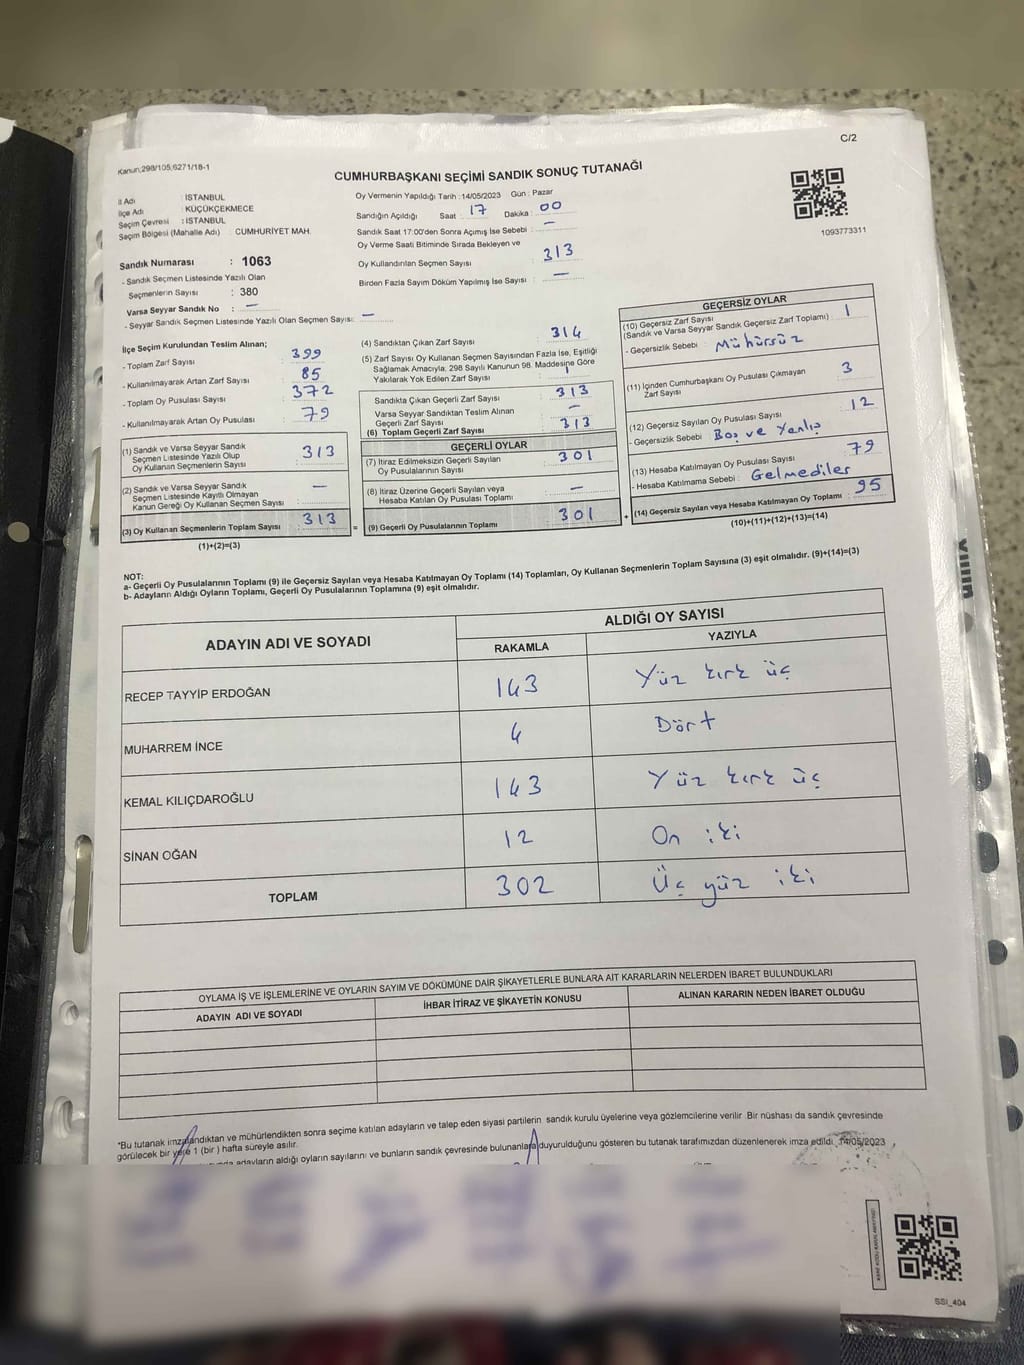 C/2
Kanun:298/105;6271/18-1
CUMHURBAŞKANI SEÇİMİ SANDIK SONUÇ TUTANAĞI
İl Adı : İSTANBUL
İlçe Adı : KÜÇÜKÇEKMECE
Seçim Çevresi : İSTANBUL
Seçim Bölgesi (Mahalle Adı) : CUMHURİYET MAH.
Oy Vermenin Yapıldığı Tarih :14/05/2023 Gün : Pazar
Sandığın Açıldığı Saat : 17 Dakika : 00
Sandık Saat 17:00'den Sonra Açımış İse Sebebi : —
Oy Verme Saati Bitiminde Sırada Bekleyen ve
Oy Kullandırılan Seçmen Sayısı : 313
Birden Fazla Sayım Döküm Yapılmış İse Sayısı : —
1093773311
Sandık Numarası : 1063
- Sandık Seçmen Listesinde Yazılı Olan
Seçmenlerin Sayısı : 380
Varsa Seyyar Sandık No : —
- Seyyar Sandık Seçmen Listesinde Yazılı Olan Seçmen Sayısı: —
İlçe Seçim Kurulundan Teslim Alınan;
- Toplam Zarf Sayısı : 399
- Kullanılmayarak Artan Zarf Sayısı : 85
- Toplam Oy Pusulası Sayısı : 372
- Kullanılmayarak Artan Oy Pusulası : 79
(1) Sandık ve Varsa Seyyar Sandık
Seçmen Listesinde Yazılı Olup
Oy Kullanan Seçmenlerin Sayısı : 313
(2) Sandık ve Varsa Seyyar Sandık
Seçmen Listesinde Kayıtlı Olmayan
Kanun Gereği Oy Kullanan Seçmen Sayısı : —
(3) Oy Kullanan Seçmenlerin Toplam Sayısı : 313
(1)+(2)=(3)
(4) Sandıktan Çıkan Zarf Sayısı : 314
(5) Zarf Sayısı Oy Kullanan Seçmen Sayısından Fazla İse, Eşitliği
Sağlamak Amacıyla, 298 Sayılı Kanunun 98. Maddesine Göre
Yakılarak Yok Edilen Zarf Sayısı : 1
Sandıkta Çıkan Geçerli Zarf Sayısı : 313
Varsa Seyyar Sandıktan Teslim Alınan
Geçerli Zarf Sayısı : —
(6) Toplam Geçerli Zarf Sayısı : 313
GEÇERLİ OYLAR
(7) İtiraz Edilmeksizin Geçerli Sayılan
Oy Pusulalarının Sayısı : 301
(8) İtiraz Üzerine Geçerli Sayılan veya
Hesaba Katılan Oy Pusulası Toplamı : —
= (9) Geçerli Oy Pusulalarının Toplamı : 301
GEÇERSİZ OYLAR
(10) Geçersiz Zarf Sayısı
(Sandık ve Varsa Seyyar Sandık Geçersiz Zarf Toplamı) : 1
- Geçersizlik Sebebi : Mühürsüz
(11) İçinden Cumhurbaşkanı Oy Pusulası Çıkmayan
Zarf Sayısı : 3
(12) Geçersiz Sayılan Oy Pusulası Sayısı : 12
- Geçersizlik Sebebi : Boş ve Yanlış
(13) Hesaba Katılmayan Oy Pusulası Sayısı : 79
- Hesaba Katılmama Sebebi : Gelmediler
+ (14) Geçersiz Sayılan veya Hesaba Katılmayan Oy Toplamı : 95
(10)+(11)+(12)+(13)=(14)
NOT:
a- Geçerli Oy Pusulalarının Toplamı (9) ile Geçersiz Sayılan veya Hesaba Katılmayan Oy Toplamı (14) Toplamları, Oy Kullanan Seçmenlerin Toplam Sayısına (3) eşit olmalıdır. (9)+(14)=(3)
b- Adayların Aldığı Oyların Toplamı, Geçerli Oy Pusulalarının Toplamına (9) eşit olmalıdır.
ADAYIN ADI VE SOYADI
ALDIĞI OY SAYISI
RAKAMLA YAZIYLA
RECEP TAYYİP ERDOĞAN 143 Yüz kırk üç
MUHARREM İNCE 4 Dört
KEMAL KILIÇDAROĞLU 143 Yüz kırk üç
SİNAN OĞAN 12 On iki
TOPLAM 302 Üç yüz iki
OYLAMA İŞ VE İŞLEMLERİNE VE OYLARIN SAYIM VE DÖKÜMÜNE DAİR ŞİKAYETLERLE BUNLARA AİT KARARLARIN NELERDEN İBARET BULUNDUKLARI
ADAYIN ADI VE SOYADI İHBAR İTİRAZ VE ŞİKAYETİN KONUSU ALINAN KARARIN NEDEN İBARET OLDUĞU
*Bu tutanak imzalandıktan ve mühürlendikten sonra seçime katılan adayların ve talep eden siyasi partilerin sandık kurulu üyelerine veya gözlemcilerine verilir. Bir nüshası da sandık çevresinde
görülecek bir yere 1 (bir ) hafta süreyle asılır.
adayların aldığı oyların sayılarını ve bunların sandık çevresinde bulunanlara duyurulduğunu gösteren bu tutanak tarafımızdan düzenlenerek imza edildi. 14/05/2023
SSI_404